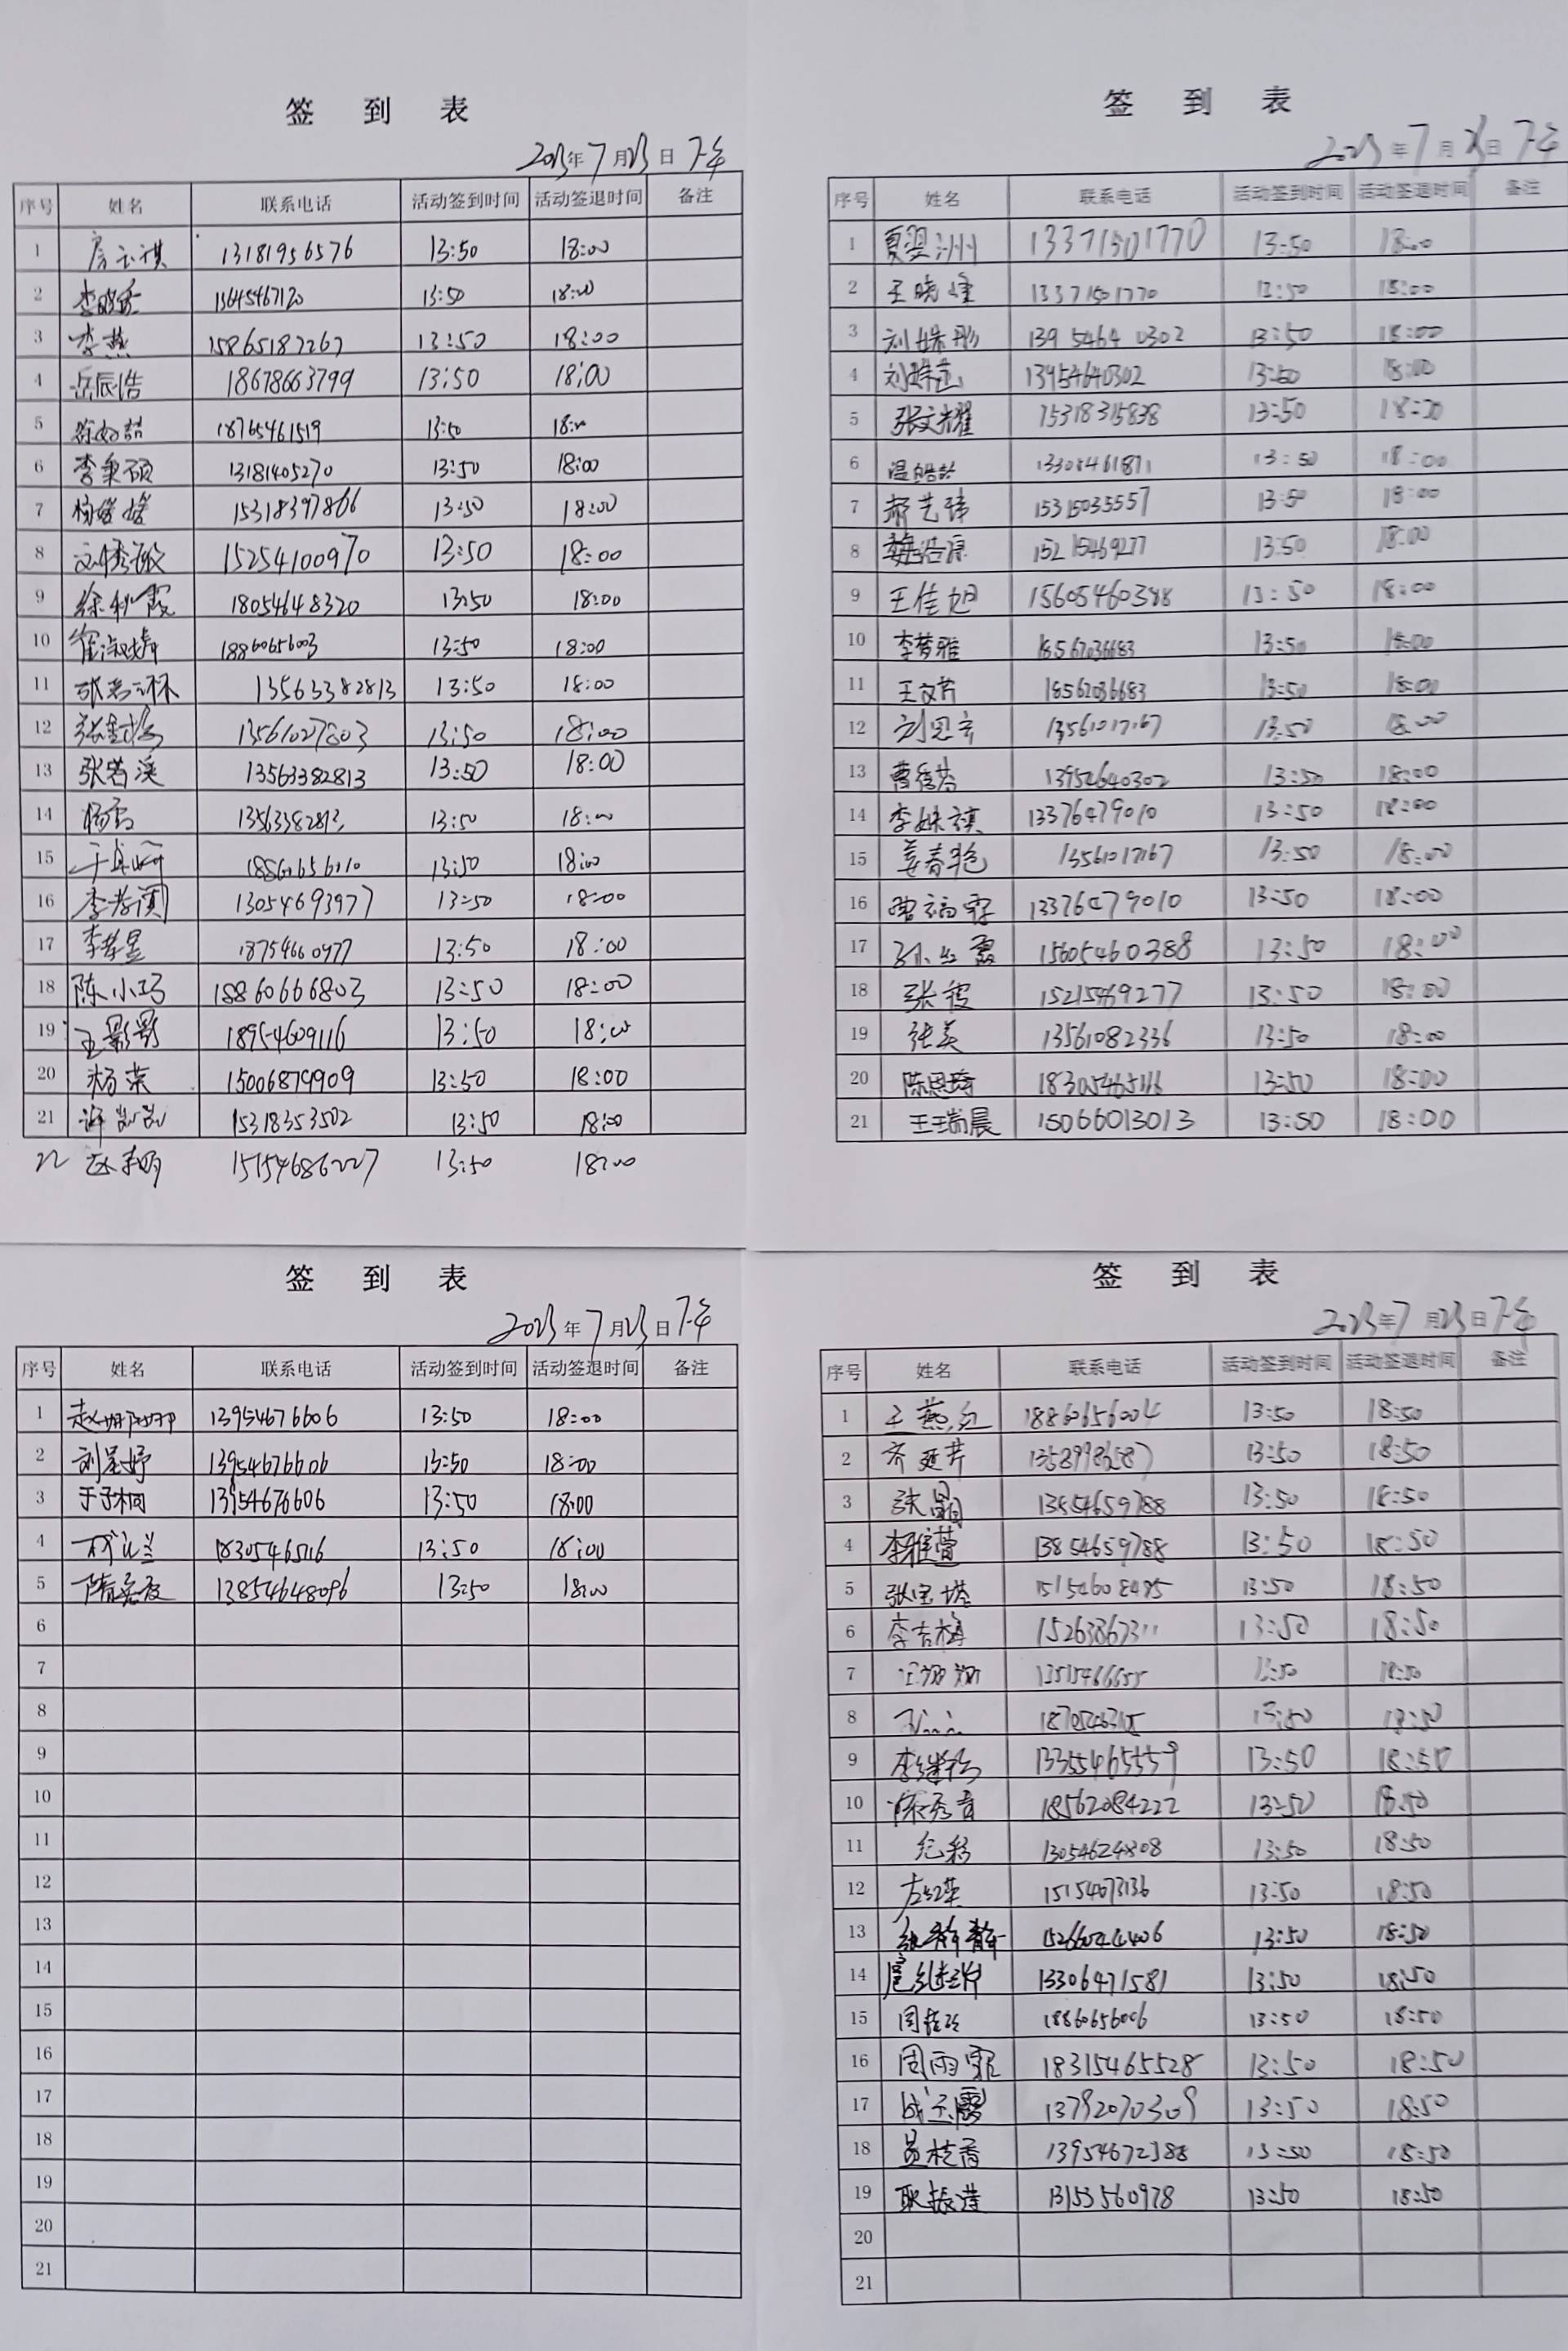 签 到 表
2023年7月23日 下午
序号 姓名 联系电话 活动签到时间 活动签退时间 备注
1 13181956576 13:50 18:00
2 13645467120 13:50 18:00
3 李燕 15865187267 13:50 18:00
4 岳辰浩 18678663799 13:50 18:00
5 18765461519 13:50 18:00
6 李秉硕 13181405270 13:50 18:00
7 杨媛媛 15318397866 13:50 18:00
8 15254100970 13:50 18:00
9 徐秋霞 18054648320 13:50 18:00
10 18860656003 13:50 18:00
11 13563382813 13:50 18:00
12 13561027803 13:50 18:00
13 张若溪 13563382813 13:50 18:00
14 杨雪 13563382813 13:50 18:00
15 13:50 18:00
16 13054693977 13:50 18:00
17 18754660977 13:50 18:00
18 陈小巧 18860666803 13:50 18:00
19 王影影 18954609116 13:50 18:00
20 杨荣 15006879909 13:50 18:00
21 15318353502 13:50 18:00
22 15154686227 13:50 18:00
签 到 表
2023年7月23日 下午
序号 姓名 联系电话 活动签到时间 活动签退时间 备注
1 夏翌洲 13371501770 13:50 18:00
2 王晓峰 13371501770 13:50 18:00
3 刘姝彤 13954640302 13:50 18:00
4 13954640302 13:50 18:00
5 张文耀 15318315838 13:50 18:00
6 13:50 18:00
7 15315035557 13:50 18:00
8 魏浩原 15215469277 13:50 18:00
9 王佳旭 15605460388 13:50 18:00
10 李梦雅 18562036683 13:50 18:00
11 王文芹 18562036683 13:50 18:00
12 刘思辛 13561017167 13:50 18:00
13 13954640302 13:50 18:00
14 李姝祺 13376479010 13:50 18:00
15 姜春艳 13561017167 13:50 18:00
16 13376479010 13:50 18:00
17 15605460388 13:50 18:00
18 15215469277 13:50 18:00
19 张英 13561082336 13:50 18:00
20 陈思琦 18305465116 13:50 18:00
21 王瑞晨 15066013013 13:50 18:00
签 到 表
2023年7月23日 下午
序号 姓名 联系电话 活动签到时间 活动签退时间 备注
1 赵娜娜 13954676606 13:50 18:00
2 刘星妤 13954676606 13:50 18:00
3 于子桐 13954676606 13:50 18:00
4 13:50 18:00
5 13854648096 13:50 18:00
6
7
8
9
10
11
12
13
14
15
16
17
18
19
20
21
签 到 表
2023年7月23日 下午
序号 姓名 联系电话 活动签到时间 活动签退时间 备注
1 王燕红 18860656004 13:50 18:50
2 齐延芹 13:50 18:50
3 张晶 13854659788 13:50 18:50
4 李雅萱 13854659788 13:50 18:50
5 张宝塔 13:50 18:50
6 李吉梅 15263867311 13:50 18:50
7 13515466655 13:50 18:50
8 13:50 18:50
9 13355465559 13:50 18:50
10 陈秀青 18562084222 13:50 18:50
11 纪彩 13054624808 13:50 18:50
12 左红英 15154673136 13:50 18:50
13 张静静 15266044406 13:50 18:50
14 13306471581 13:50 18:50
15 18860656006 13:50 18:50
16 周雨霏 18315465528 13:50 18:50
17 战玉霞 13792070309 13:50 18:50
18 员桂香 13954672388 13:50 18:50
19 耿振莲 13153560978 13:50 18:50
20
21